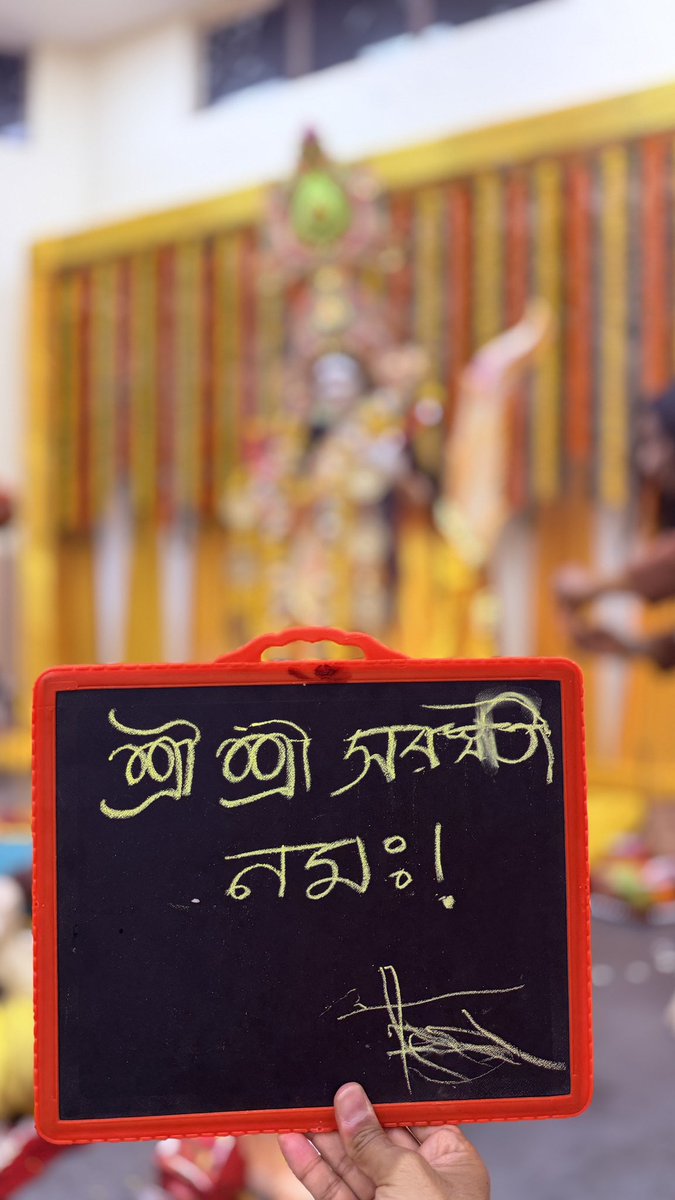 শ্রী শ্রী সরস্বতী
নমঃ!